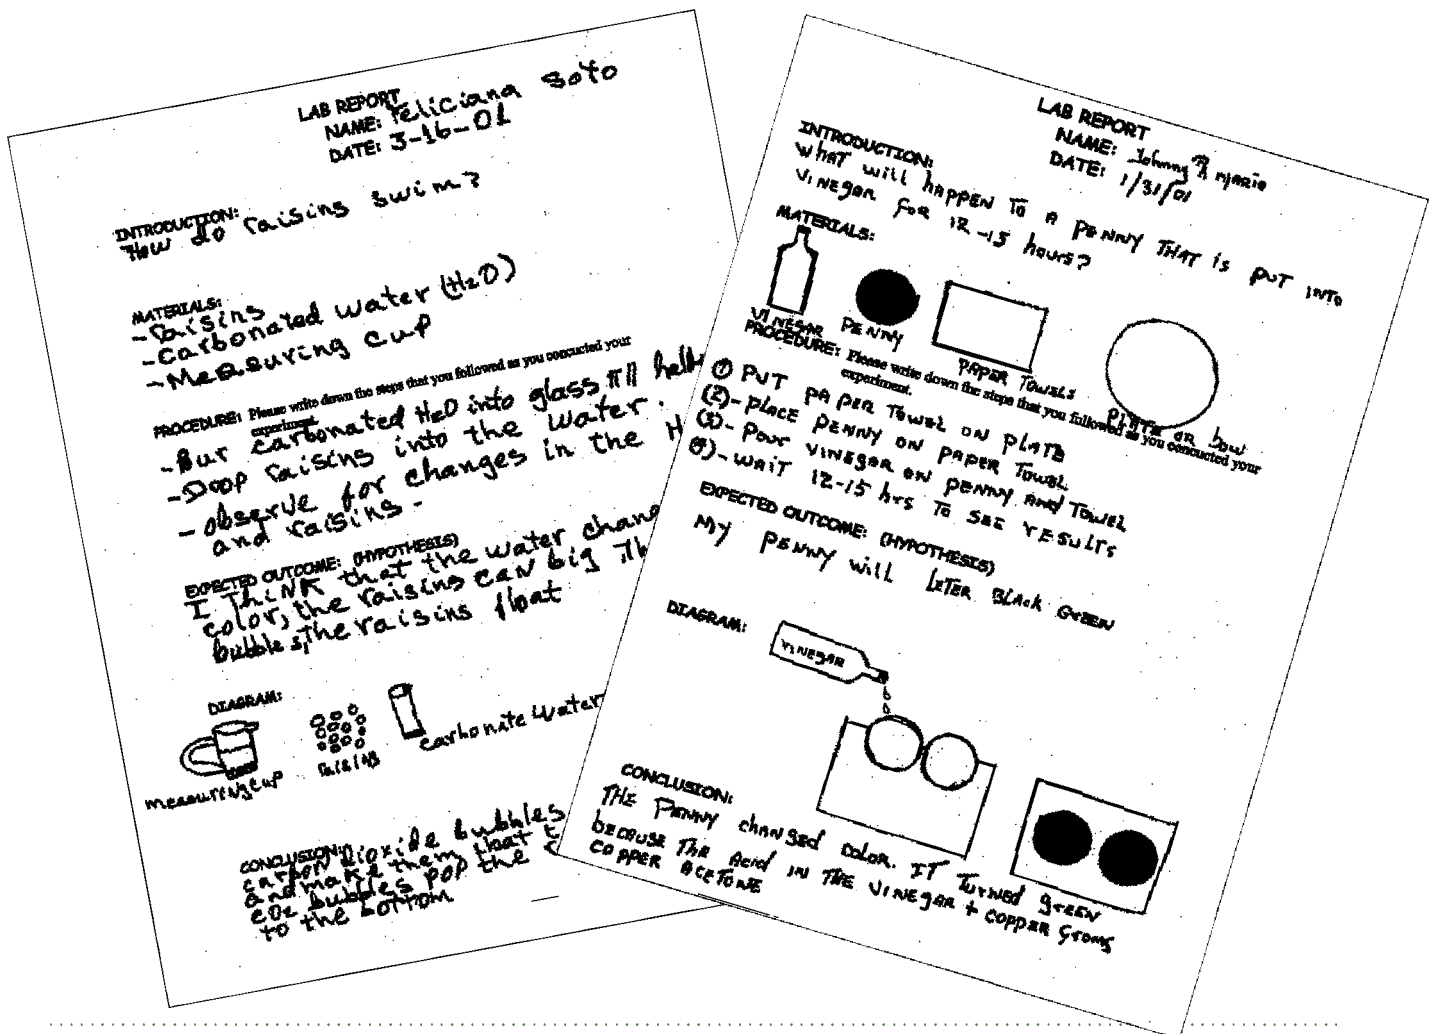 LAB REPORT
NAME: Feliciana Soto
DATE: 3-16-01
INTRODUCTION:
How do raisins swim?
MATERIALS:
-raisins
-Carbonated water (H2O)
-Measuring cup
PROCEDURE: Please write down the steps that you followed as you concucted your
experiment.
-Pur carbonated H2O into glass till
-Drop raisins into the water.
-Observe for changes in the
and raisins-
EXPECTED OUTCOME: (HYPOTHESIS)
I THiNK that the water
color, the raisins can big
bubbles, the raisins float
DIAGRAM:
measuring cup
raisins
carbonate water
CONCLUSION:
carbon Dioxide bubbles
and make them float
CO2 bubbles pop the
to the bottom
LAB REPORT
NAME: Johnny R MARIO
DATE: 1/31/01
INTRODUCTION:
WHAT will HAPPEN TO A PENNY THAT is PUT INTO
VINEGAR for 12-15 hours?
MATERIALS:
VINEGAR
PENNY
PAPER TOWELS
PLATE OR bowl
PROCEDURE: Please write down the steps that you followed as you concucted your
experiment.
(1) PUT PAPER TOWEL ON PLATE
(2)-PLACE PENNY ON PAPER TOWEL
(3)-POUR VINEGAR ON PENNY AND TOWEL
(4)-WAIT 12-15 hrs TO SEE rESULTS
EXPECTED OUTCOME: (HYPOTHESIS)
MY PENNY will LETER BLACK GREEN
DIAGRAM:
VINEGAR
CONCLUSION:
THE PENNY changed color. IT TURNED grEEN
bECAUSE THE Acid IN THE VINEgAR + COPPER
COPPER ACETONE